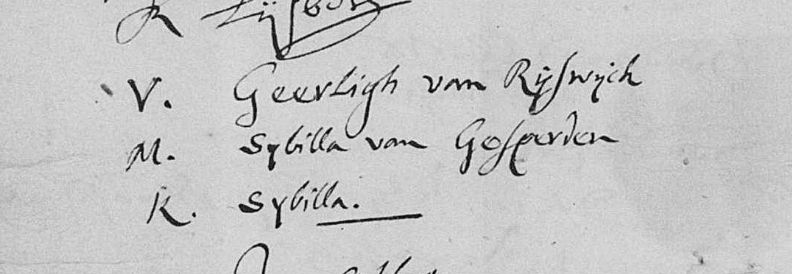 K Lijsbet
V. Geerligh van Rijswijck
M. Sybilla van Gesperden
K. Sybilla.